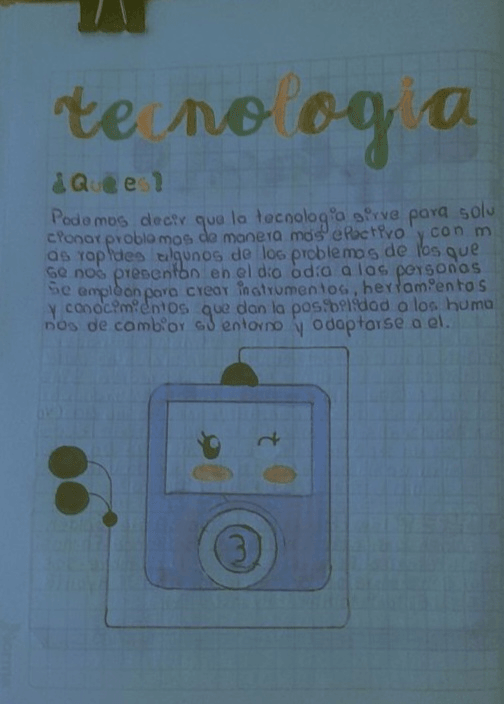 tecnologia
¿Que es?
Podemos decir que la tecnologia sirve para solu
cionar problemas de manera mas efectivo y con m
as rapides algunos de los problemas de los que
se nos presentan en el dia adia a las personas
se emplean para crear instrumentos, herramientas
y conocimientos que dan la posibilidad a los huma
nos de cambiar su entorno y adaptarse a el.
3